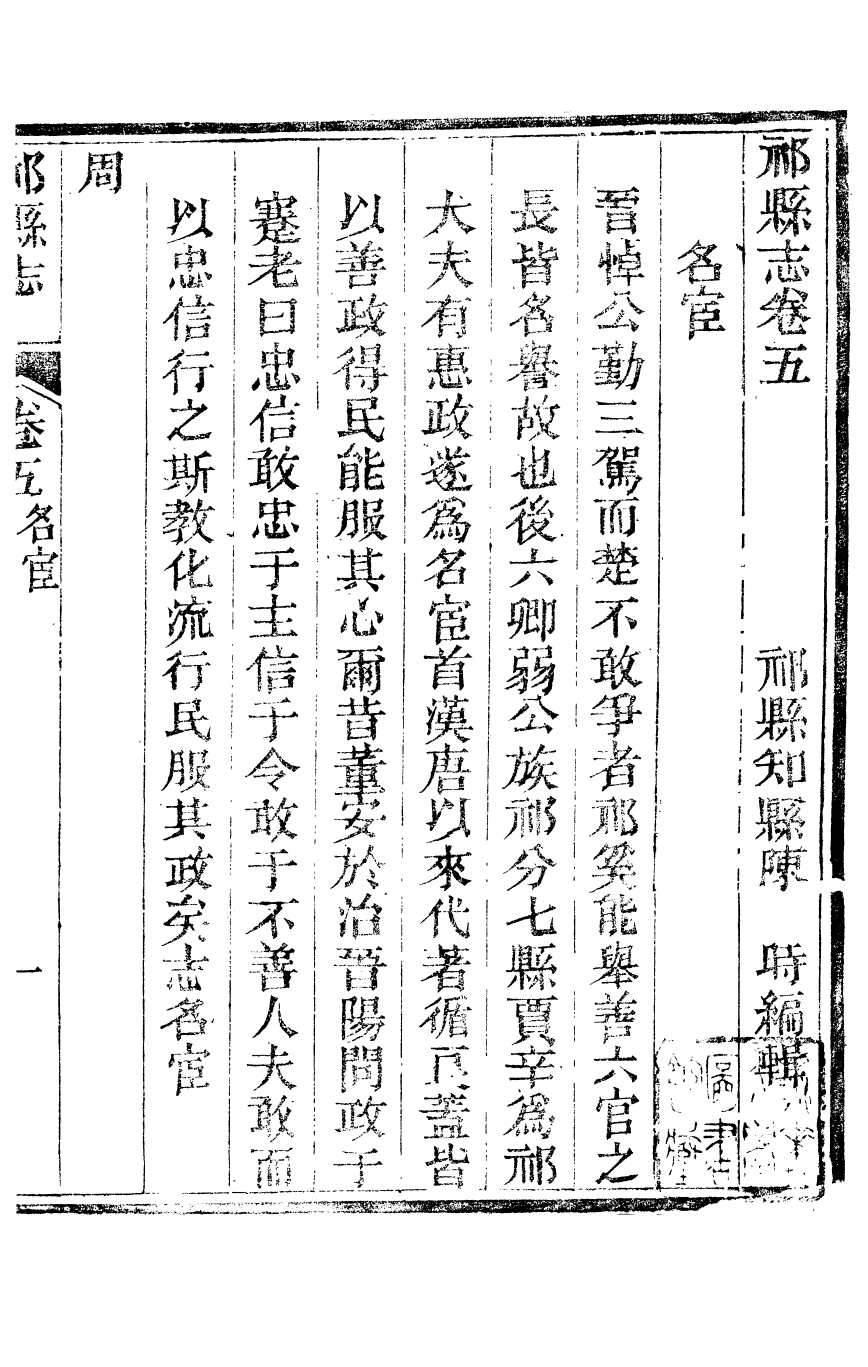 祁縣志卷五
祁縣知縣陳　時編輯
名宦
晉悼公勤三駕而楚不敢爭者祁奚能舉善六官之
長皆名譽故也後六卿弱公族祁分七縣賈辛爲祁
大夫有惠政遂爲名宦首漢唐以來代著循良蓋皆
以善政得民能服其心爾昔董安於治晉陽問政于
蹇老曰忠信敢忠于主信于令敢于不善人夫敢而
以忠信行之斯教化流行民服其政矣志名宦
周
祁縣志
卷五名宦
一